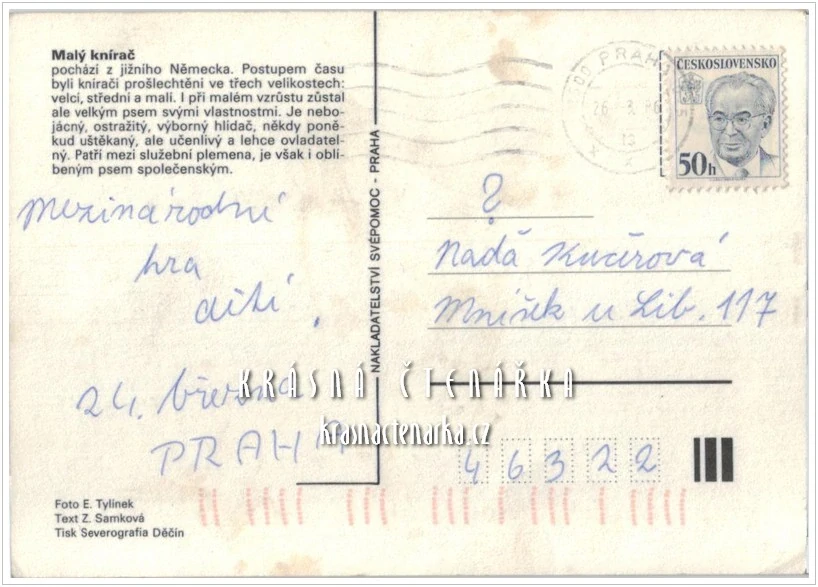 Malý knírač
pochází z jižního Německa. Postupem času
byli knírači prošlechtěni ve třech velikostech:
velcí, střední a malí. I při malém vzrůstu zůstal
ale velkým psem svými vlastnostmi. Je nebo-
jácný, ostražitý, výborný hlídač, někdy poně-
kud uštěkaný, ale učenlivý a lehce ovladatel-
ný. Patří mezi služební plemena, je však i oblí-
beným psem společenským.
Mezinárodní
hra
dětí,
24. března
PRAHA
Foto E. Tylínek
Text Z. Samková
Tisk Severografia Děčín
NAKLADATELSTVÍ SVÉPOMOC - PRAHA
PRAHA
26. 3. 86
ČESKOSLOVENSKO
50h
?
Naďa Kučerová
Mníšek u Lib. 117
46322
KRÁSNÁ ČTENÁŘKA
krasnactenarka.cz